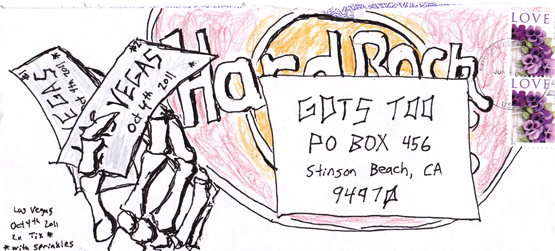 Hard Rock
*VEGAS*
Oct 4th 2011
*VEGAS*
Oct 4th 2011
GDTS TOO
PO BOX 456
Stinson Beach, CA
94970
Las Vegas
Oct 4th 2011
2x Tix *
* with sprinkles
LOVE
LOVE